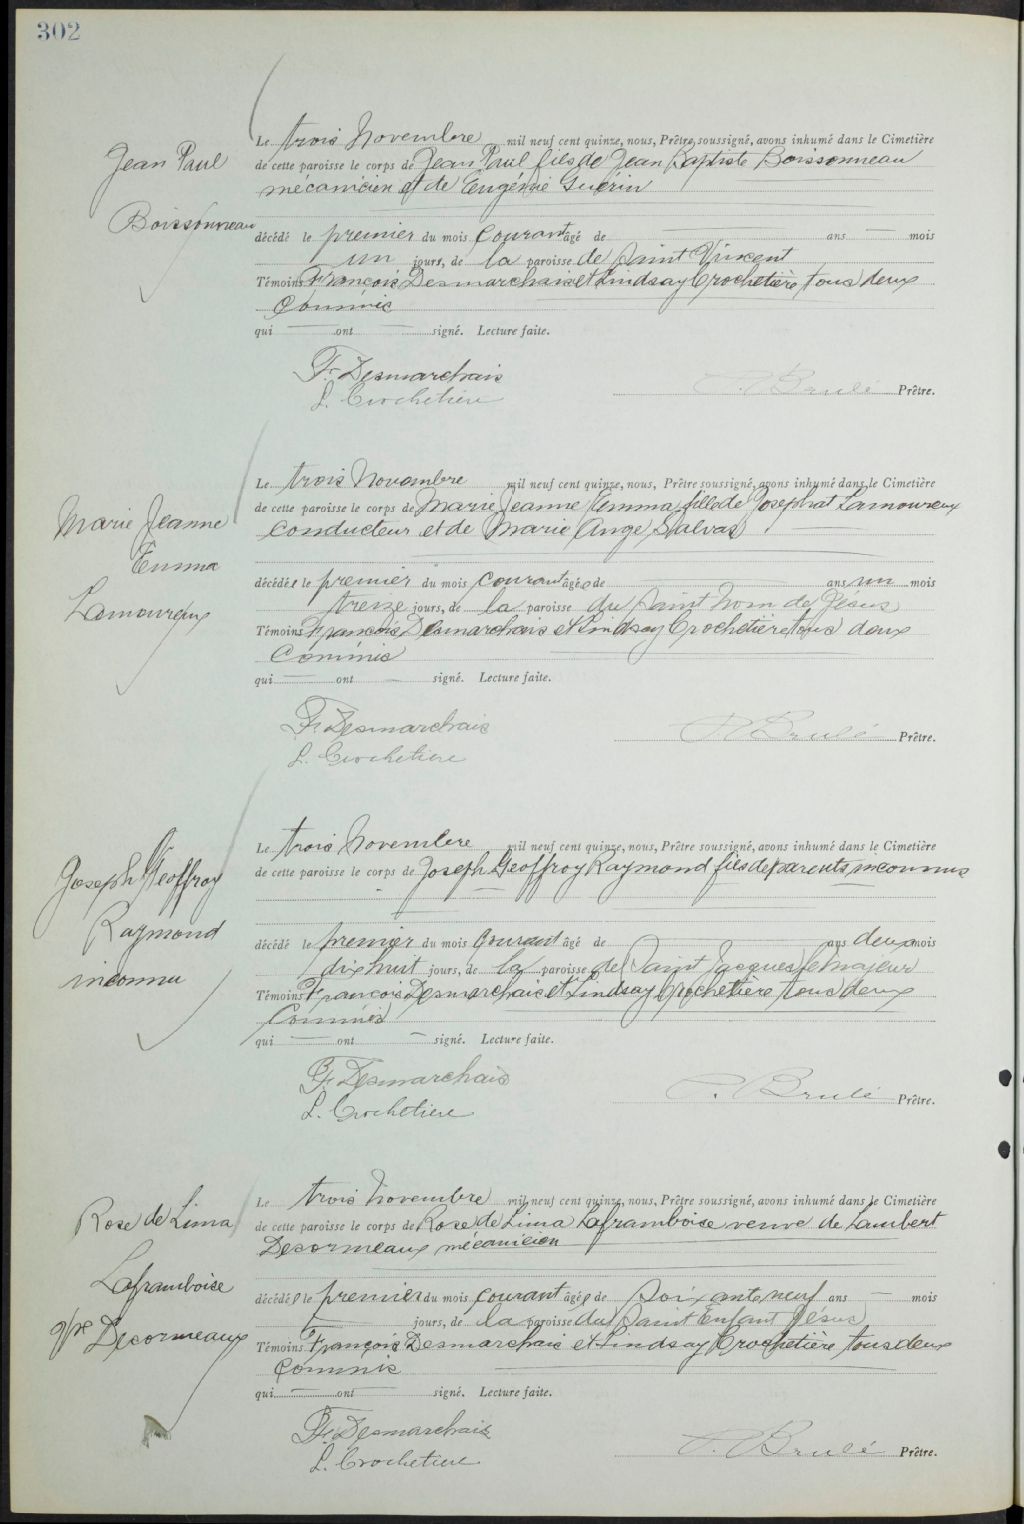 302
Jean Paul
Boissonneau
Le trois Novembre mil neuf cent quinze, nous, Prêtre, soussigné, avons inhumé dans le Cimetière
de cette paroisse le corps de Jean Paul fils de Jean Baptiste Boissonneau
mécanicien et de Eugénie Guérin
décédé le premier du mois courant âgé de ans mois
un jours, de la paroisse de Saint Vincent
Témoins François Desmarchais et Lindsay Crochetière tous deux
Commis
qui ont signé. Lecture faite.
F. Desmarchais
L. Crochetière
Brulé Prêtre.
Marie Jeanne
Emma
Lamoureux
Le trois Novembre mil neuf cent quinze, nous, Prêtre soussigné, avons inhumé dans le Cimetière
de cette paroisse le corps de Marie Jeanne Emma fille de Josephat Lamoureux
conducteur et de Marie Ange Salvas
décédée le premier du mois courant âgée de ans un mois
treize jours, de la paroisse du Saint Nom de Jésus
Témoins François Desmarchais et Lindsay Crochetière tous deux
Commis
qui ont signé. Lecture faite.
F. Desmarchais
L. Crochetiere
Brulé Prêtre.
Joseph Geoffroy
Raymond
inconnu
Le trois Novembre mil neuf cent quinze, nous, Prêtre soussigné, avons inhumé dans le Cimetière
de cette paroisse le corps de Joseph Geoffroy Raymond fils de parents inconnus
décédé le premier du mois courant âgé de ans deux mois
dix huit jours, de la paroisse de Saint Jacques le majeur
Témoins François Desmarchais et Lindsay Crochetière tous deux
Commis
qui ont signé. Lecture faite.
F. Desmarchais
L. Crochetiere
Brulé Prêtre.
Rose de Lima
Laframboise
Decormeaux
Le trois Novembre mil neuf cent quinze, nous, Prêtre soussigné, avons inhumé dans le Cimetière
de cette paroisse le corps de Rose de Lima Laframboise veuve de Lambert
Decormeaux mécanicien
décédée le premier du mois courant âgée de soixante neuf ans mois
jours, de la paroisse du Saint Enfant Jésus
Témoins François Desmarchais et Lindsay Crochetière tous deux
Commis
qui ont signé. Lecture faite.
F. Desmarchais
L. Crochetiere
Brulé Prêtre.